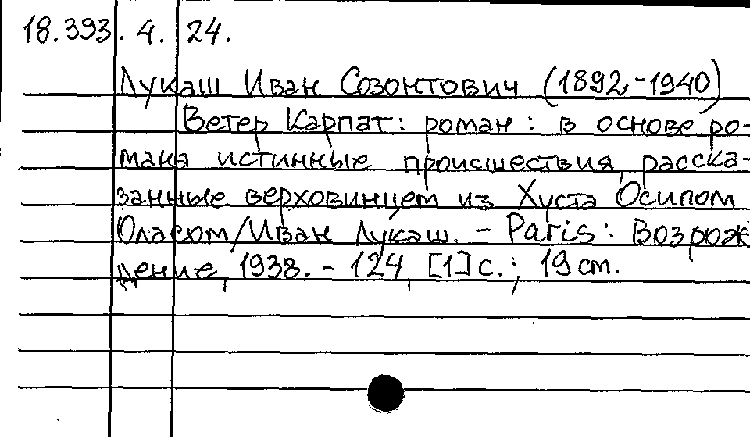 18.393.4.24.
Лукаш Иван Созонтович (1892-1940)
Ветер Карпат: роман: в основе ро-
мана истинные происшествия, расска-
занные верховинцем из Хуста Осипом
Оласюм/Иван Лукаш. - Paris: Возрож
дение, 1938. - 124, [1] с.; 19 cm.